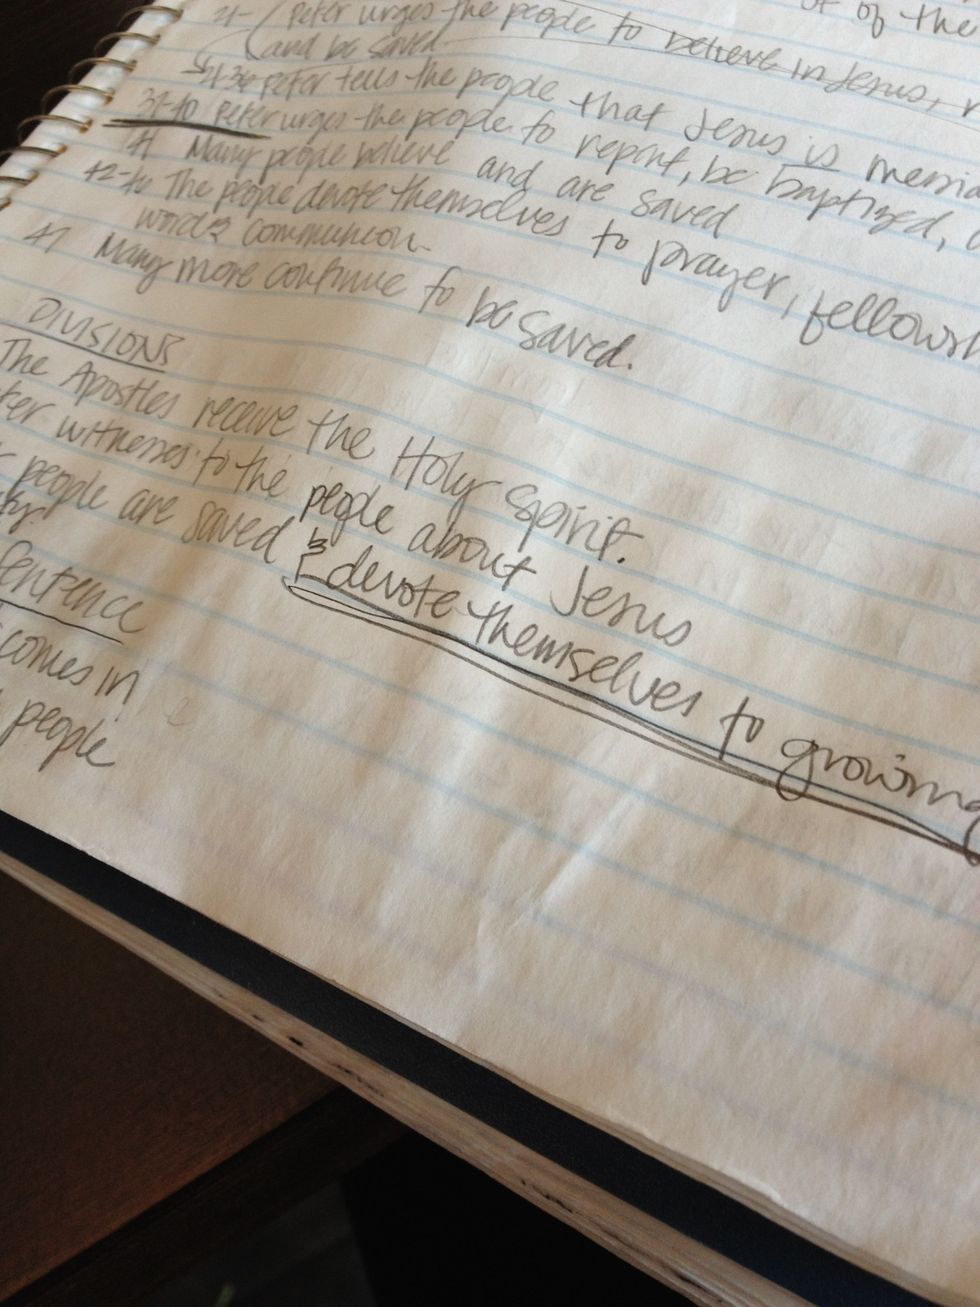 of the
21- Peter urges the people to believe in Jesus,
and be saved
-36 Peter tells the people that Jesus is
37-40 Peter urges the people to repent, be baptized,
and are saved
41 Many people believe
42-46 The people devote themselves to prayer, fellowsh
word & communion.
47 Many more continue to be saved.
DIVISIONS
The Apostles receive the Holy Spirit.
ter witnesses to the people about Jesus
people are saved & devote themselves to growing
Sentence
comes in
people